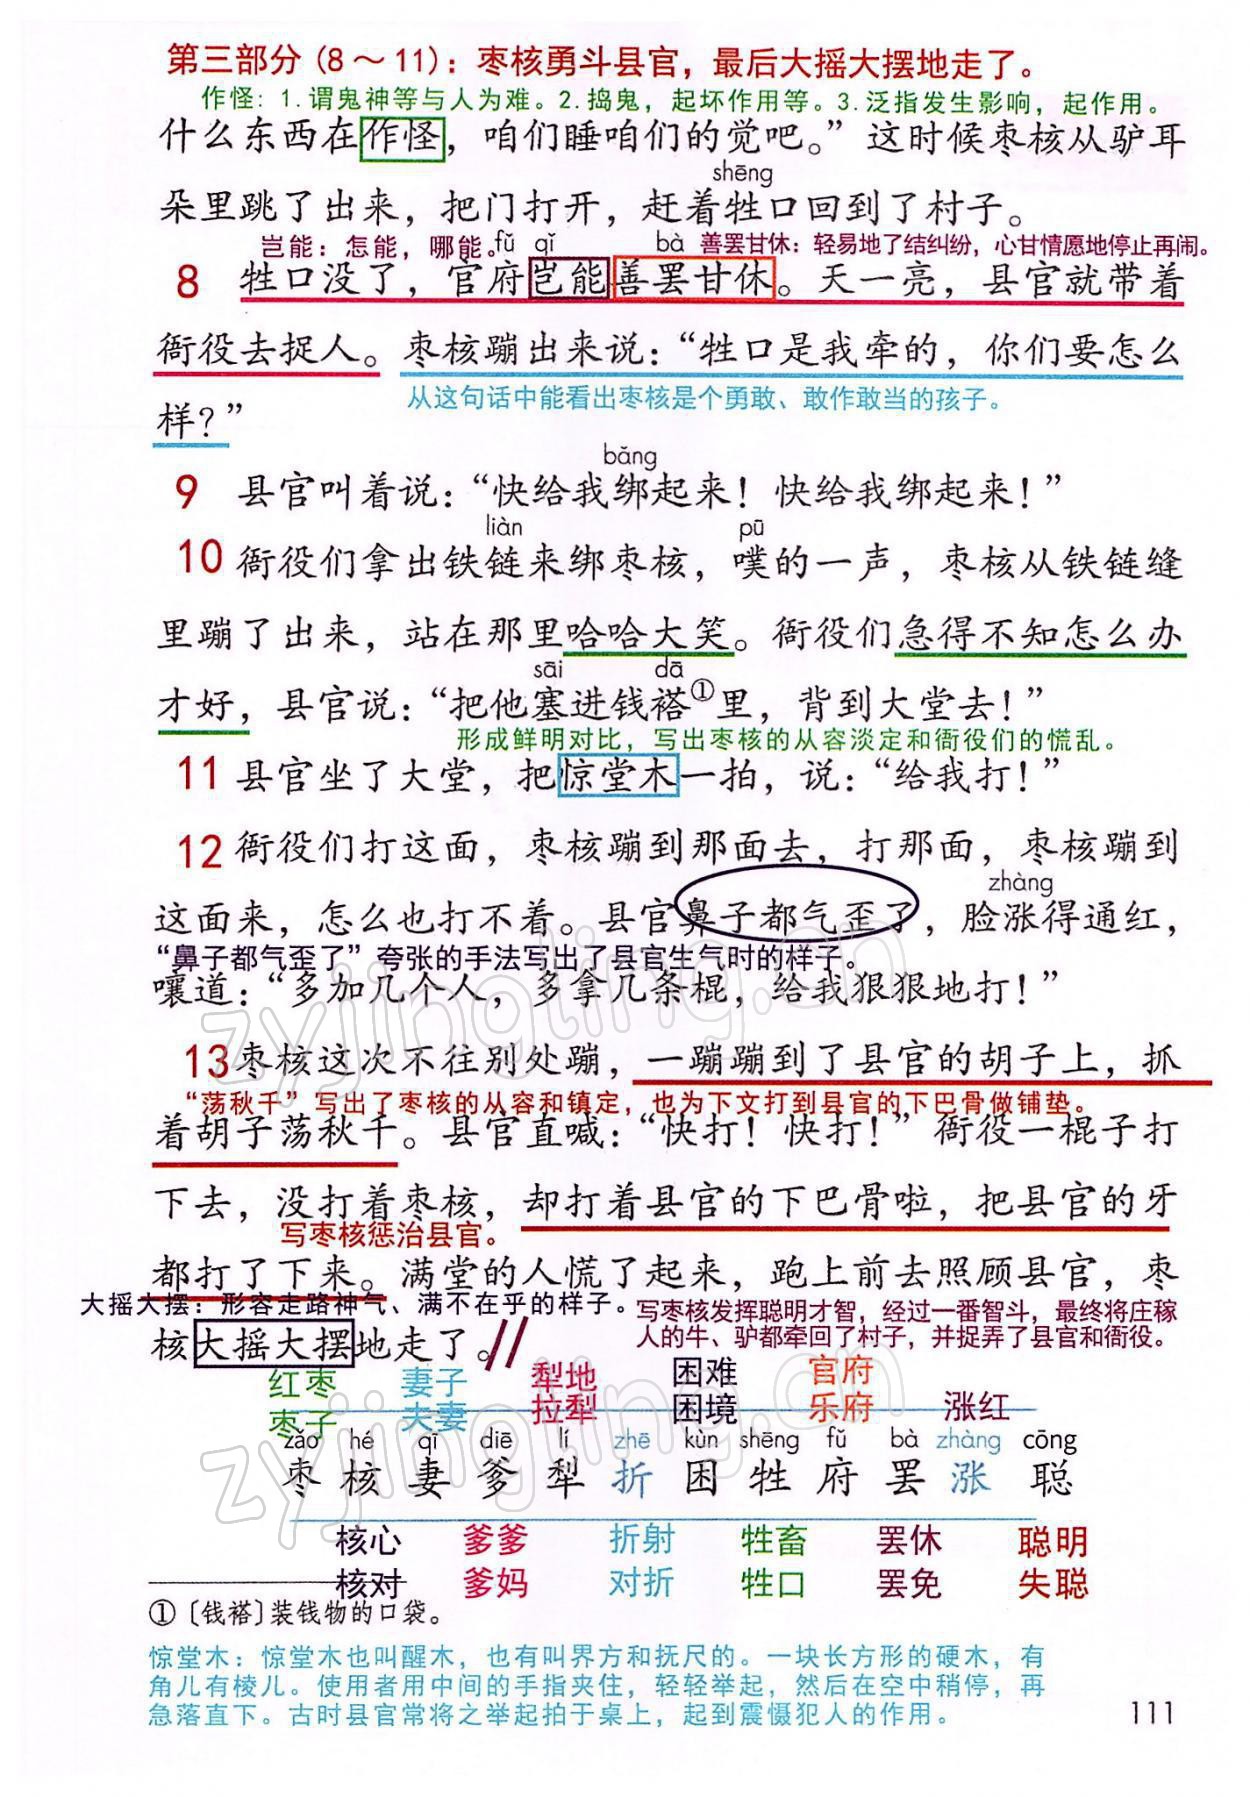 第三部分（8～11）：枣核勇斗县官，最后大摇大摆地走了。
作怪：1.谓鬼神等与人为难。2.捣鬼，起坏作用等。3.泛指发生影响，起作用。
什么东西在作怪，咱们睡咱们的觉吧。”这时候枣核从驴耳
shēng
朵里跳了出来，把门打开，赶着牲口回到了村子。
岂能：怎能，哪能。fǔ qǐ bà 善罢甘休：轻易地了结纠纷，心甘情愿地停止再闹。
8 牲口没了，官府岂能善罢甘休。天一亮，县官就带着
衙役去捉人。枣核蹦出来说：“牲口是我牵的，你们要怎么
从这句话中能看出枣核是个勇敢、敢作敢当的孩子。
样？”
bǎng
9 县官叫着说：“快给我绑起来！快给我绑起来！”
liàn pū
10 衙役们拿出铁链来绑枣核，噗的一声，枣核从铁链缝
里蹦了出来，站在那里哈哈大笑。衙役们急得不知怎么办
sāi dā
才好，县官说：“把他塞进钱褡①里，背到大堂去！”
形成鲜明对比，写出枣核的从容淡定和衙役们的慌乱。
11 县官坐了大堂，把惊堂木一拍，说：“给我打！”
12 衙役们打这面，枣核蹦到那面去，打那面，枣核蹦到
zhàng
这面来，怎么也打不着。县官鼻子都气歪了，脸涨得通红，
“鼻子都气歪了”夸张的手法写出了县官生气时的样子。
嚷道：“多加几个人，多拿几条棍，给我狠狠地打！”
13 枣核这次不往别处蹦，一蹦蹦到了县官的胡子上，抓
“荡秋千”写出了枣核的从容和镇定，也为下文打到县官的下巴骨做铺垫。
着胡子荡秋千。县官直喊：“快打！快打！”衙役一棍子打
下去，没打着枣核，却打着县官的下巴骨啦，把县官的牙
写枣核惩治县官。
都打了下来。满堂的人慌了起来，跑上前去照顾县官，枣
大摇大摆：形容走路神气、满不在乎的样子。
写枣核发挥聪明才智，经过一番智斗，最终将庄稼
核大摇大摆地走了。//
人的牛、驴都牵回了村子，并捉弄了县官和衙役。
红枣 妻子 犁地 困难 官府
枣子 夫妻 拉犁 困境 乐府 涨红
zǎo hé qī diē lí zhē kùn shēng fǔ bà zhàng cōng
枣 核 妻 爹 犁 折 困 牲 府 罢 涨 聪
核心 爹爹 折射 牲畜 罢休 聪明
核对 爹妈 对折 牲口 罢免 失聪
①〔钱褡〕装钱物的口袋。
惊堂木：惊堂木也叫醒木，也有叫界方和抚尺的。一块长方形的硬木，有
角儿有棱儿。使用者用中间的手指夹住，轻轻举起，然后在空中稍停，再
急落直下。古时县官常将之举起拍于桌上，起到震慑犯人的作用。
111
zyjingling.cn
zyjingling.cn